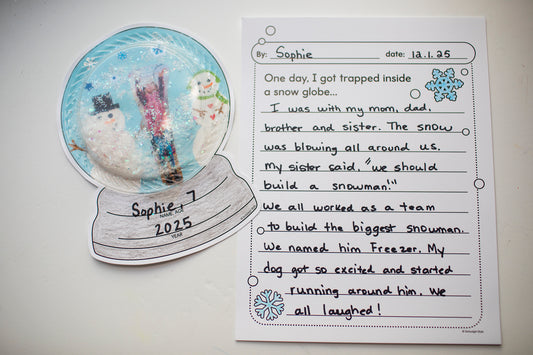 Sophie, 7
NAME, AGE
2025
YEAR
By: Sophie date: 12.1.25
One day, I got trapped inside
a snow globe...
I was with my mom, dad,
brother and sister. The snow
was blowing all around us.
my sister said, "we should
build a snowman!"
We all worked as a team
to build the biggest snowman.
We named him Freezer. My
dog got so excited and started
running around him. We
all laughed!